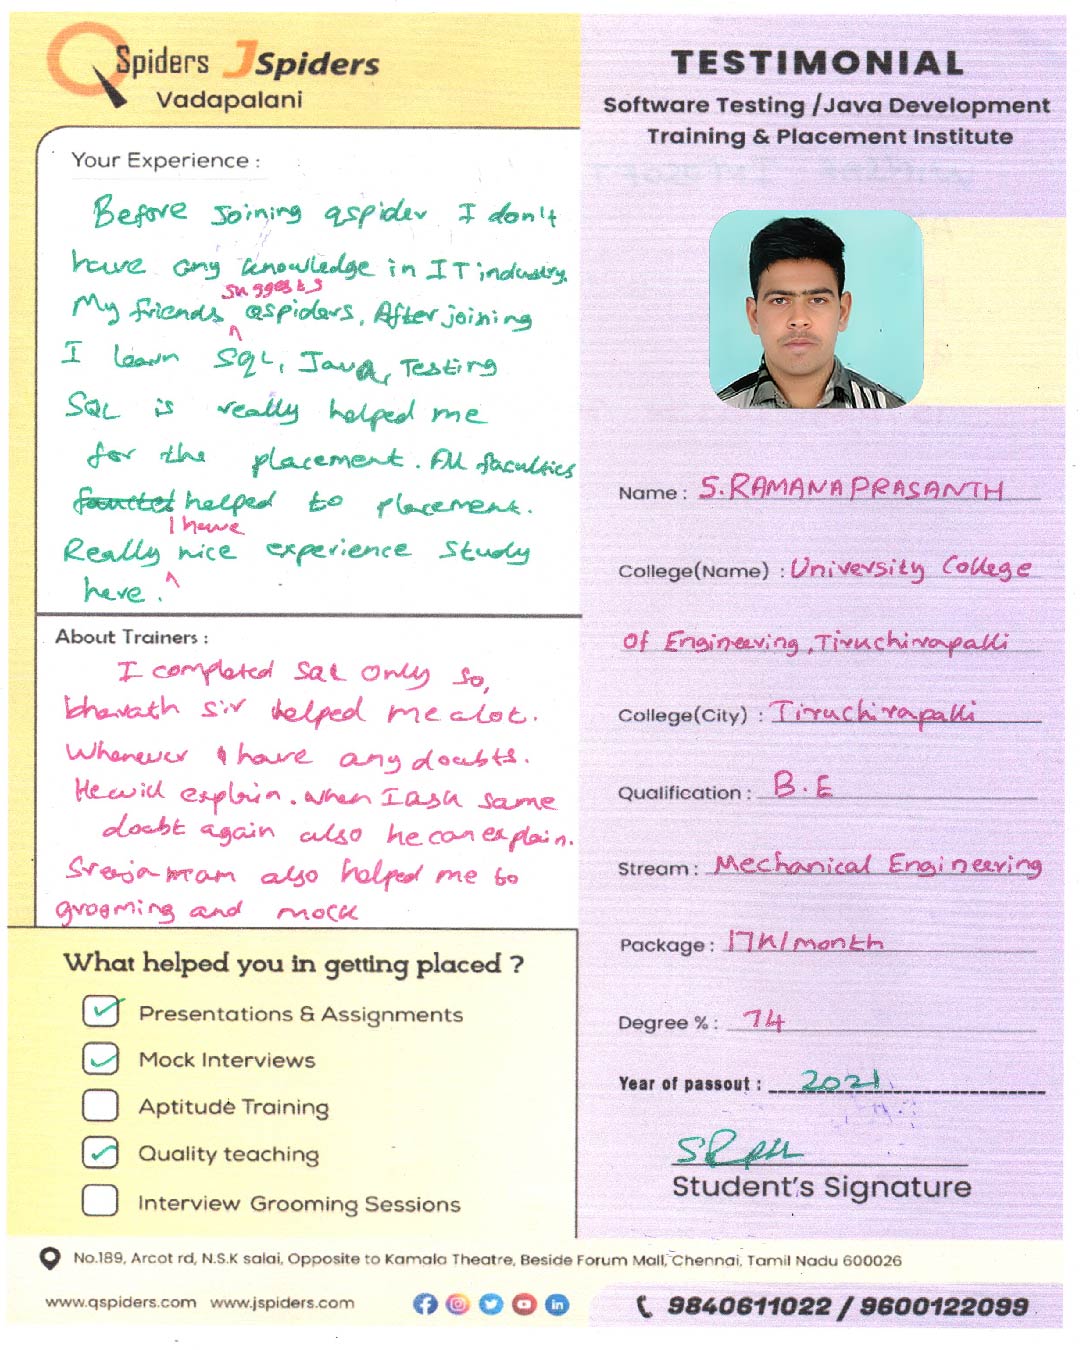 QSpiders JSpiders
Vadapalani
Your Experience :
Before joining qspider I don't
have any knowledge in IT industry.
suggests
My friends ^ qspiders, After joining
I learn SQL, Java, Testing
SQL is really helped me
for the placement. All faculties
helped to placement.
I have
Really ^ nice experience study
here.
About Trainers :
I completed SQL Only so,
bharath sir helped me alot.
Whenever I have any doubts.
He will explain. when I ask same
doubt again also he can explain.
Sreeja mam also helped me to
grooming and mock
What helped you in getting placed ?
Presentations & Assignments
Mock Interviews
Aptitude Training
Quality teaching
Interview Grooming Sessions
TESTIMONIAL
Software Testing /Java Development
Training & Placement Institute
Name : S.RAMANAPRASANTH
College(Name) : University College
Of Engineering, Tiruchirapalli
College(City) : Tiruchirapalli
Qualification : B.E
Stream : Mechanical Engineering
Package : 17K/month
Degree % : 74
Year of passout : 2021
Student's Signature
No.189, Arcot rd, N.S.K salai, Opposite to Kamala Theatre, Beside Forum Mall, Chennai, Tamil Nadu 600026
www.qspiders.com www.jspiders.com
9840611022 / 9600122099